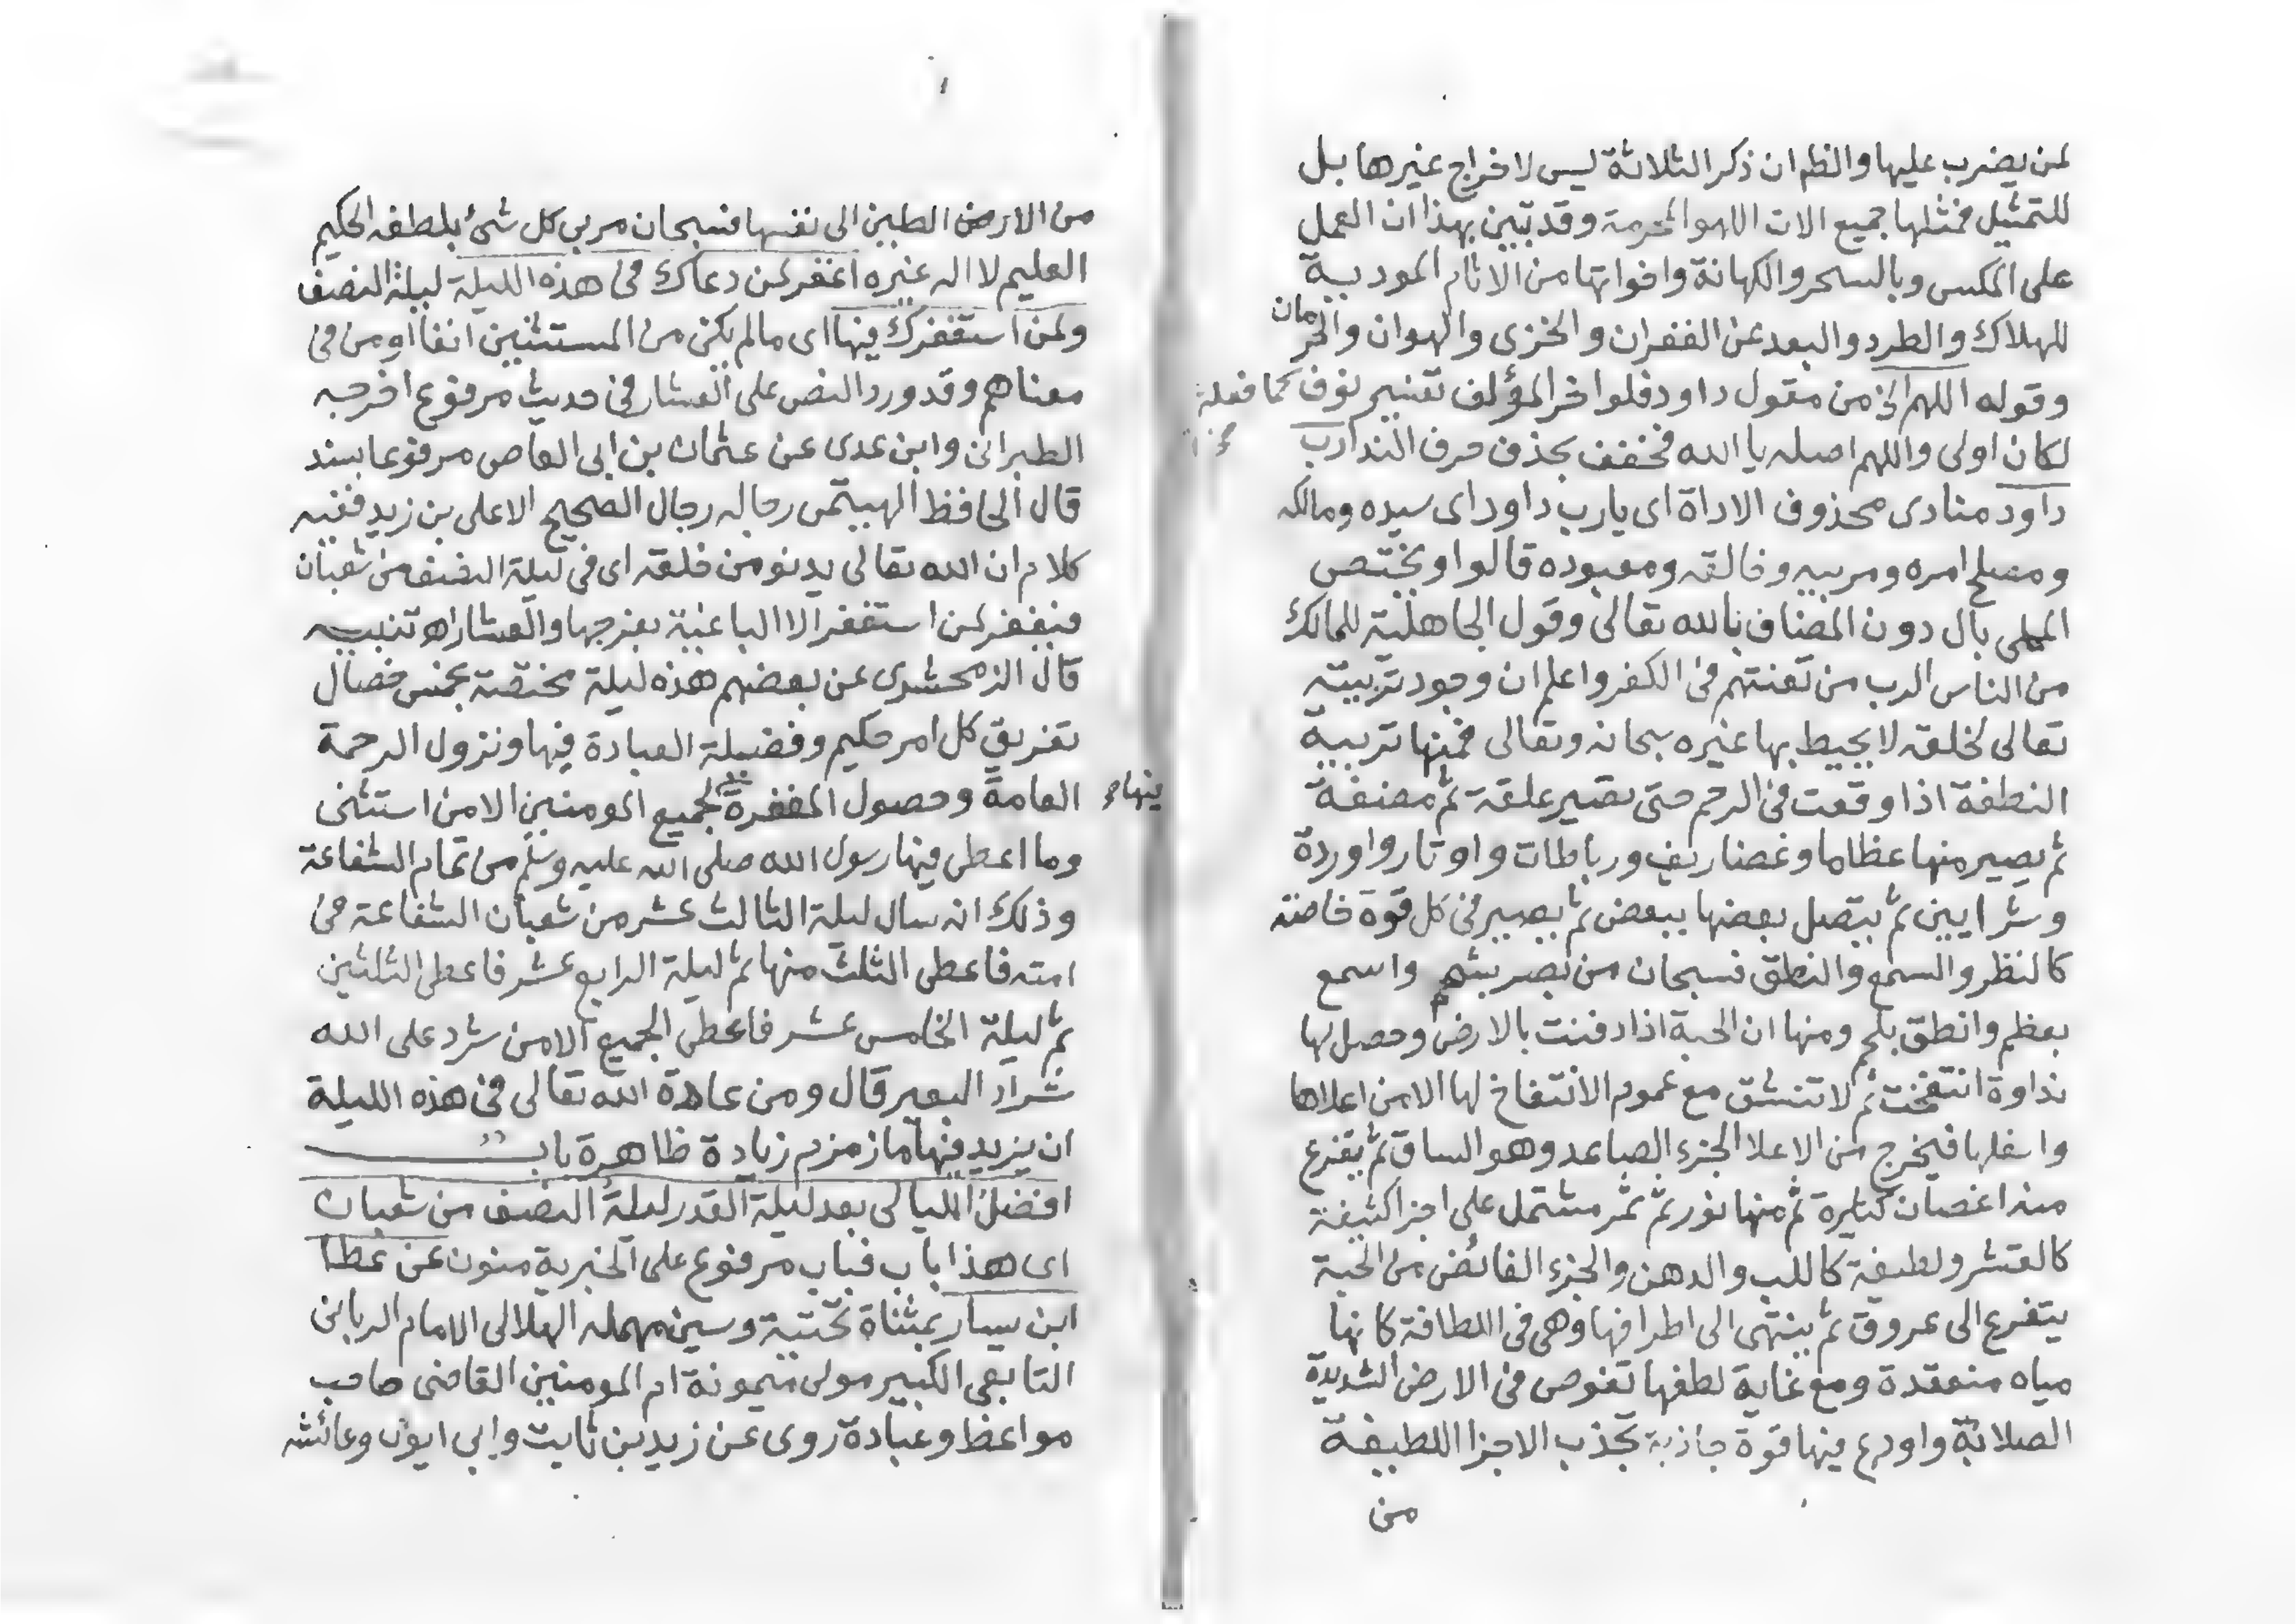 لمن يضرب عليها والظم ان ذكر الثلاثة ليس لاخراج غيرها بل
للتمثيل فمثلها جميع الات اللهو المحرمة وقد تبين بهذا ان العمل
على المكس وبالسحر والكهانة واخواتها من الاثام المودية
للهلاك والطرد والبعد عن الغفران والخزى والهوان والحرمان
وقوله اللهم الخ من مقول داود فلو اخر المؤلف تفسير نوف كما فعله
لكان اولى واللهم اصله يا الله فخفف بحذف حرف الندا رب
داود منادى محذوف الاداة اى يارب داود اى سيده ومالكه
ومصلح امره ومربيه وخالقه ومعبوده قالوا ويختص
المحلى بال دون المضاف بالله تعالى وقول الجاهلية للمالك
من الناس الرب من تعنتهم فى الكفر واعلم ان وجود تربيته
تعالى لخلقه لا يحيط بها غيره سبحانه وتعالى فمنها تربية
النطفة اذا وقعت فى الرحم حتى تصير علقة ثم مضغة
ثم يصير منها عظاما وغضاريف ورباطات واوتار واوردة
وشرايين ثم يتصل بعضها ببعض ثم يصير فى كل قوة خاصة
كالنظر والسمع والنطق فسبحان من بصر بشحم واسمع
بعظم وانطق بلحم ومنها ان الحبة اذا دفنت بالارض وحصل لها
نداوة انتفخت ثم لا تنشق مع عموم الانتفاخ لها الا من اعلاها
واسفلها فيخرج من الاعلا الجزء الصاعد وهو الساق ثم يتفرع
منه اغصان كثيرة ثم منها نور ثم ثمر مشتمل على اجزا كثيفة
كالقشر ولطيفة كاللب والدهن والجزء الغائص من الحبة
يتفرع الى عروق ثم ينتهى الى اطرافها وهى فى اللطافة كانها
مياه منعقدة ومع غاية لطفها تغوص فى الارض الشديدة
الصلابة واودع فيها قوة جاذبة تجذب الاجزا اللطيفة
من
من الارض الطين الى نفسها فسبحان مربى كل شئ بلطفه الحكيم
العليم لا اله غيره اغفر لمن دعاك فى هذه الليلة ليلة النصف
ولمن استغفرك فيها اى مالم يكن من المستثنين انفا او من فى
معناهم وقد ورد النص على العشار فى حديث مرفوع اخرجه
الطبرانى وابن عدى عن عثمان بن ابى العاص مرفوعا بسند
قال الحافظ الهيتمى رجاله رجال الصحيح الا على بن زيد ففيه
كلام ان الله تعالى يدنو من خلقه اى فى ليلة النصف من شعبان
فيغفر لمن استغفر الا الباغية بفرجها والعشار اه تنبيه
قال الزمحشرى عن بعضهم هذه ليلة مختصة بخمس خصال
تفريق كل امر حكيم وفضيلة العبادة فيها ونزول الرحمة
العامة وحصول المغفرة فيها لجميع المومنين الا من استثنى
وما اعطى فيها رسول الله صلى الله عليه وسلم من تمام الشفاعة
وذلك انه سال ليلة الثالث عشر من شعبان الشفاعة فى
امته فاعطى الثلث منها ثم ليلة الرابع عشر فاعطى الثلثين
ثم ليلة الخامس عشر فاعطى الجميع الا من شرد على الله
شراد البعير قال ومن عادة الله تعالى فى هذه الليلة
ان يزيد فيها ما زمزم زيادة ظاهرة باب
افضل الليالى بعد ليلة القدر ليلة النصف من شعبان
اى هذا باب فباب مرفوع على الخبرية منون عن عطا
ابن يسار بمثناة تحتية وسين مهمله الهلالى الامام الربانى
التابعى الكبير مولى ميمونة ام المومنين القاضى صاحب
مواعظ وعبادة روى عن زيد بن ثابت وابى ايوب وعائشه